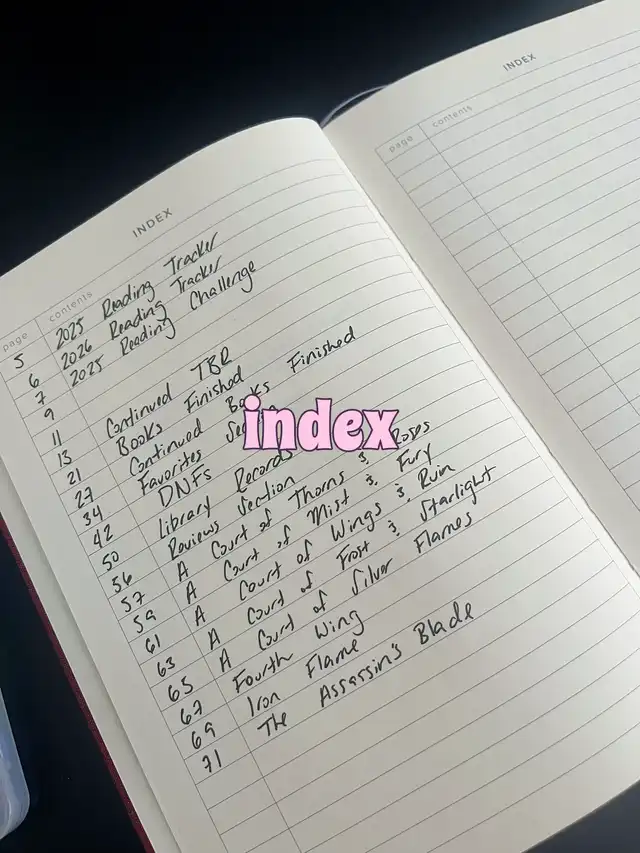 INDEX
page contents
5 2025 Reading Tracker
6 2026 Reading Tracker
7 2025 Reading Challenge
9
11
13 Continued TBR
21 Books Finished
27 Continued Books Finished
34 Favorites
42 DNFs
50 Library Records
56 Reviews Section
57 A Court of Thorns & Roses
59 A Court of Mist & Fury
61 A Court of Wings & Ruin
63 A Court of Frost & Starlight
65 A Court of Silver Flames
67 Fourth Wing
69 Iron Flame
71 The Assassin's Blade
index
INDEX
page contents